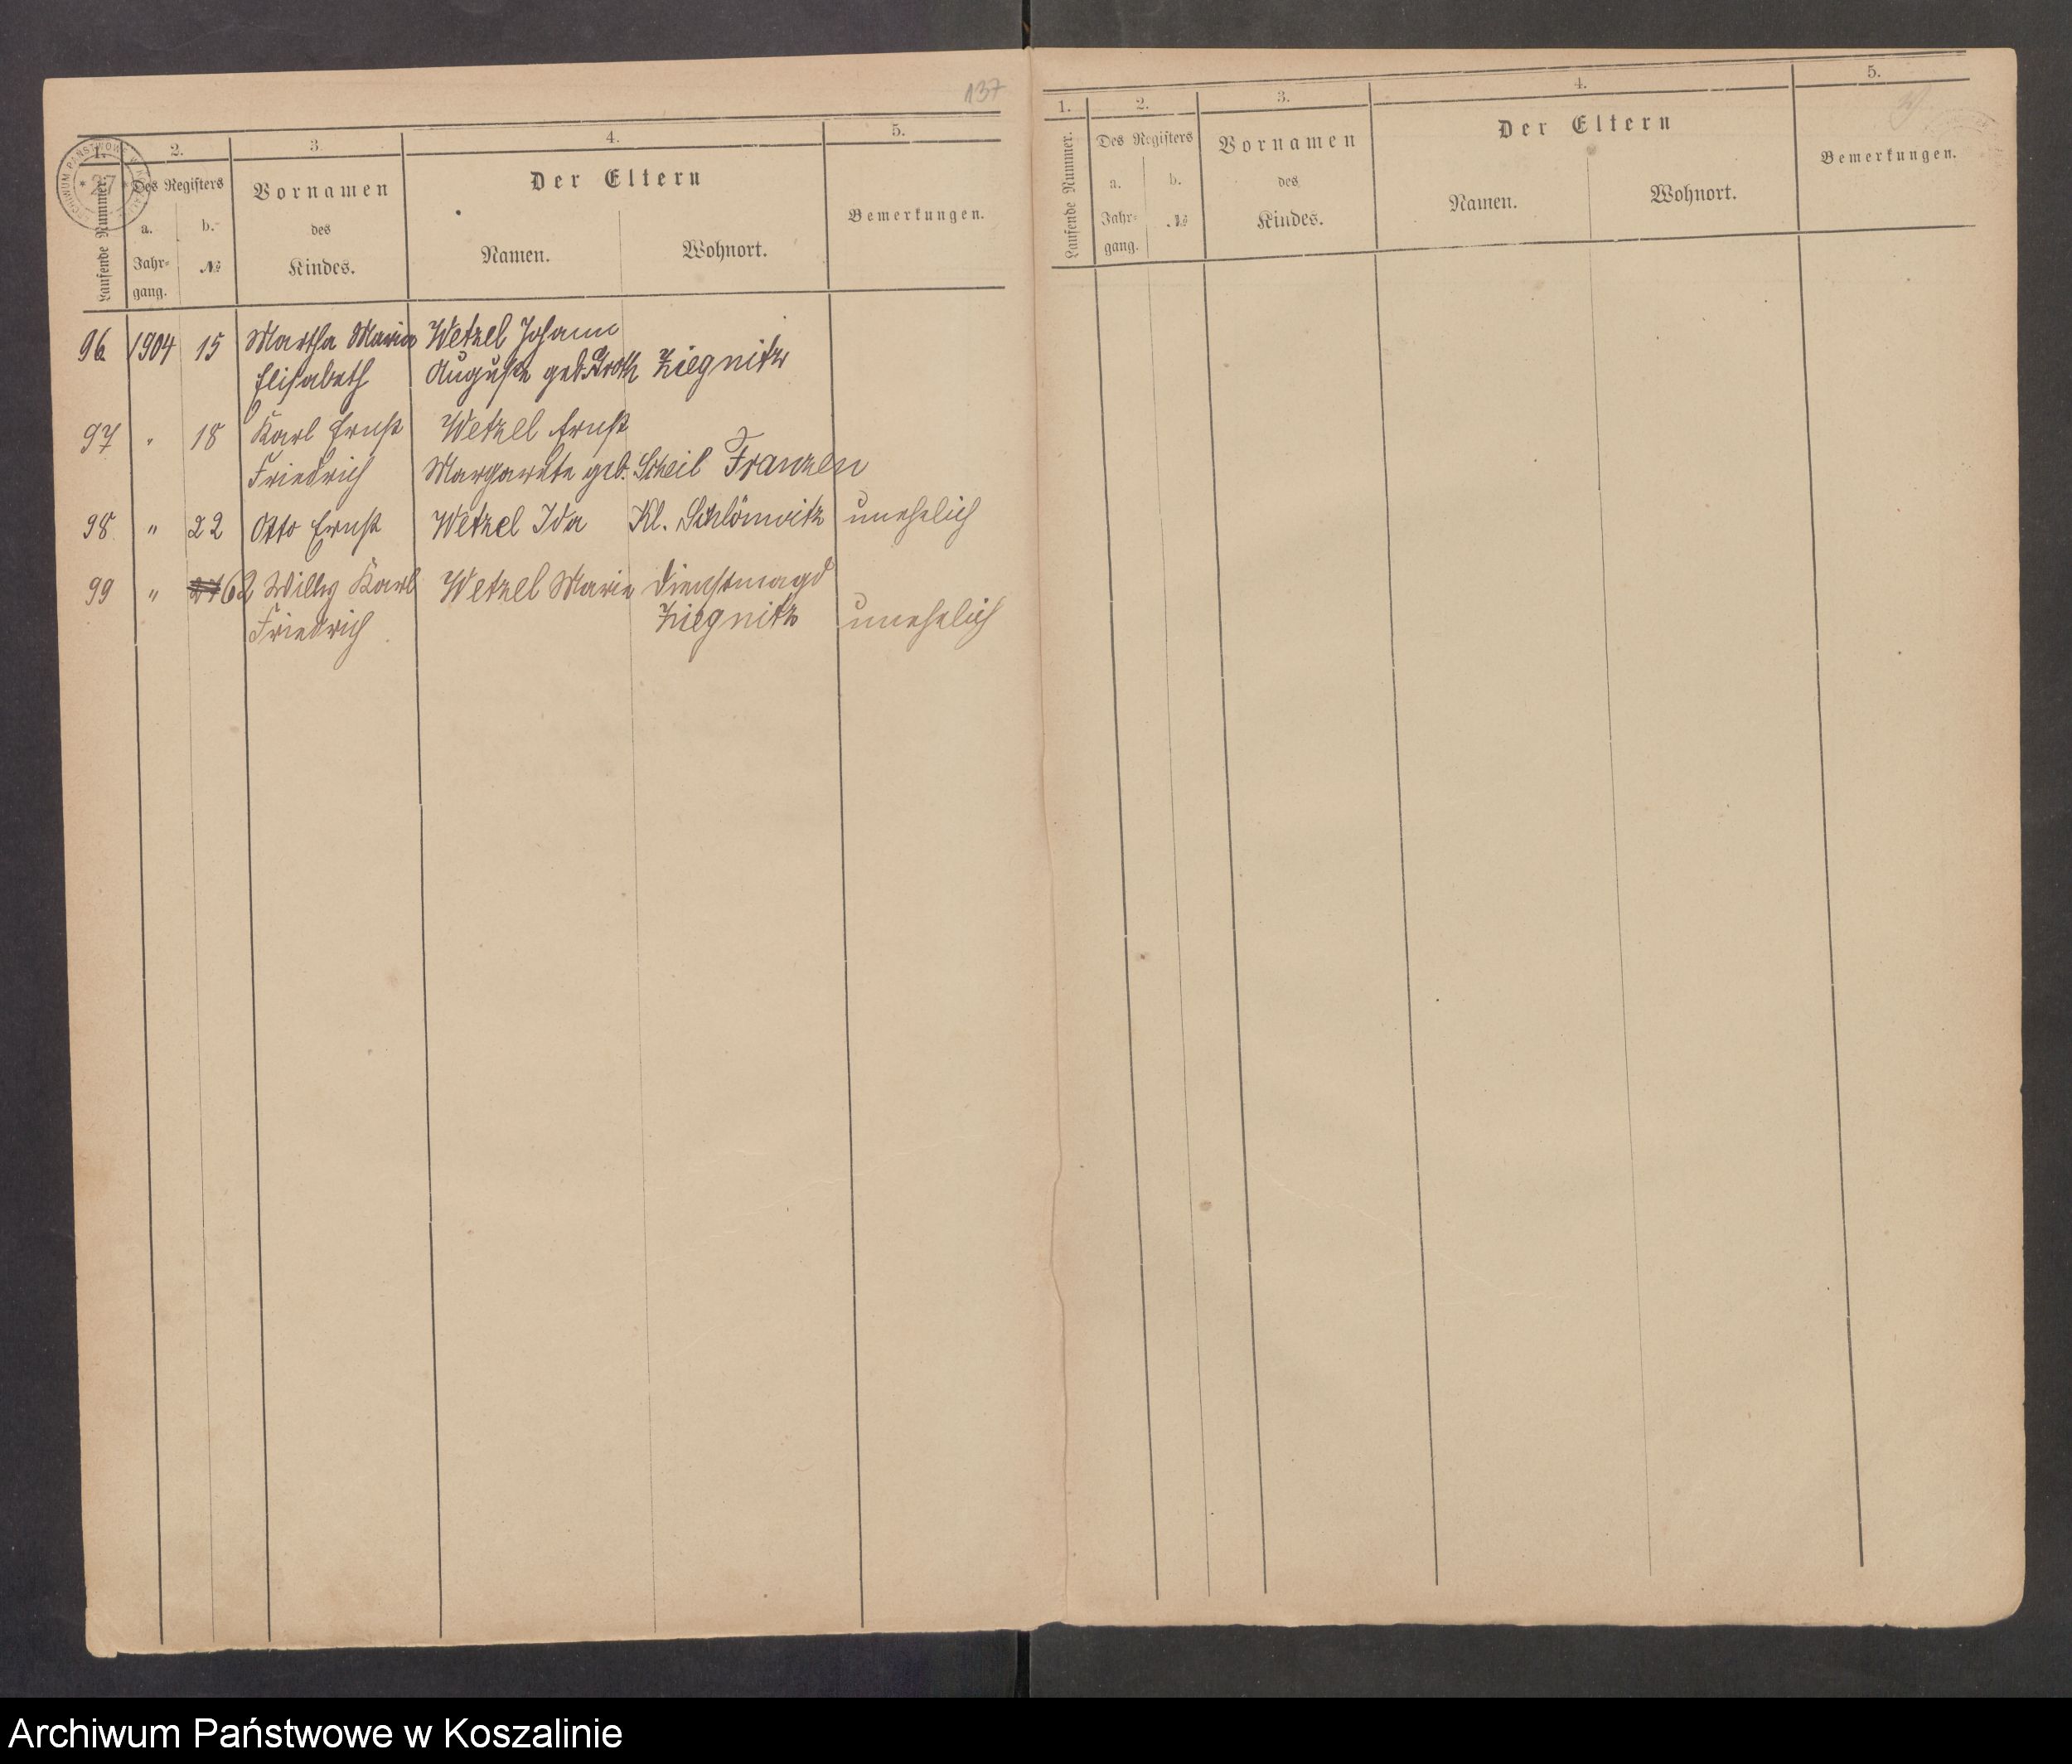 137
1. 2. 3. 4. 5.
Laufende Nummer. Des Registers Vornamen des Kindes. Der Eltern Bemerkungen.
a. b. Namen. Wohnort.
Jahr- №
gang.
* 27 *
96 1904 15 Martha Maria Wetzel Johann
Elisabeth Auguste geb. Groth Ziegnitz
97 " 18 Karl Ernst Wetzel Ernst
Friedrich Margarete geb. Scheil Franzen
98 " 22 Otto Ernst Wetzel Ida Kl. Schlönwitz unehelich
99 " 62 Willy Karl Wetzel Marie Dienstmagd
Friedrich Ziegnitz unehelich
1. 2. 3. 4. 5.
Laufende Nummer. Des Registers Vornamen des Kindes. Der Eltern Bemerkungen.
a. b. Namen. Wohnort.
Jahr- №
gang.
Archiwum Państwowe w Koszalinie